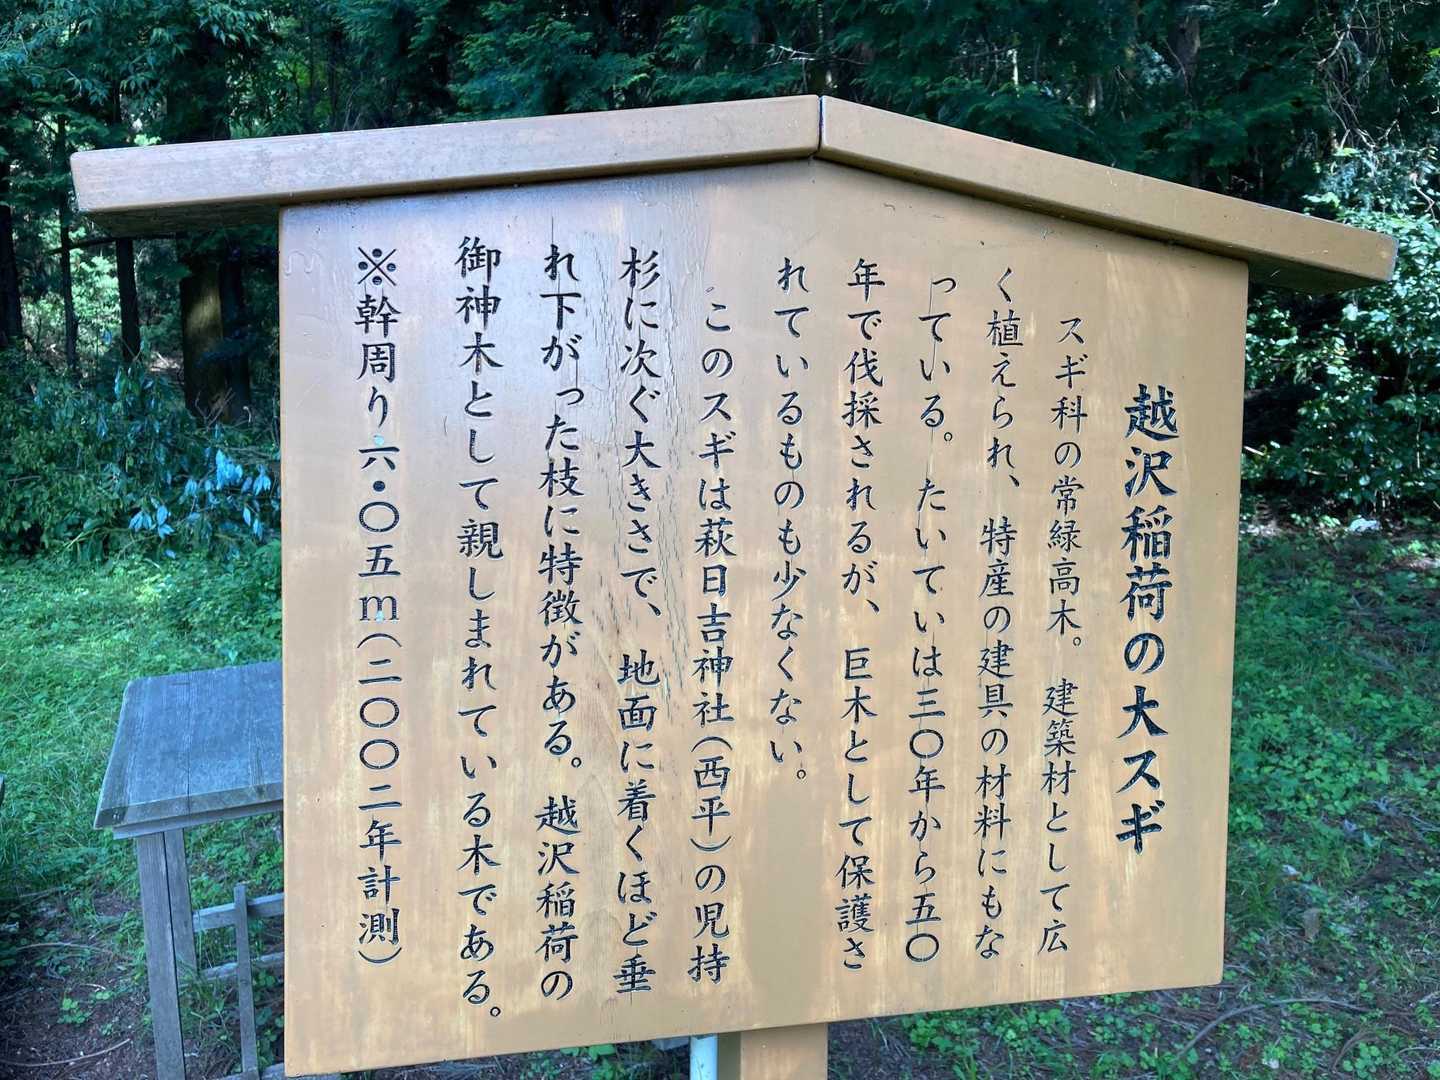 越沢稲荷の大スギ
スギ科の常緑高木。建築材として広
く植えられ、特産の建具の材料にもな
っている。たいていは三〇年から五〇
年で伐採されるが、巨木として保護さ
れているものも少なくない。
このスギは萩日吉神社（西平）の児持
杉に次ぐ大きさで、地面に着くほど垂
れ下がった枝に特徴がある。越沢稲荷の
御神木として親しまれている木である。
※幹周り六・〇五ｍ（二〇〇二年計測）